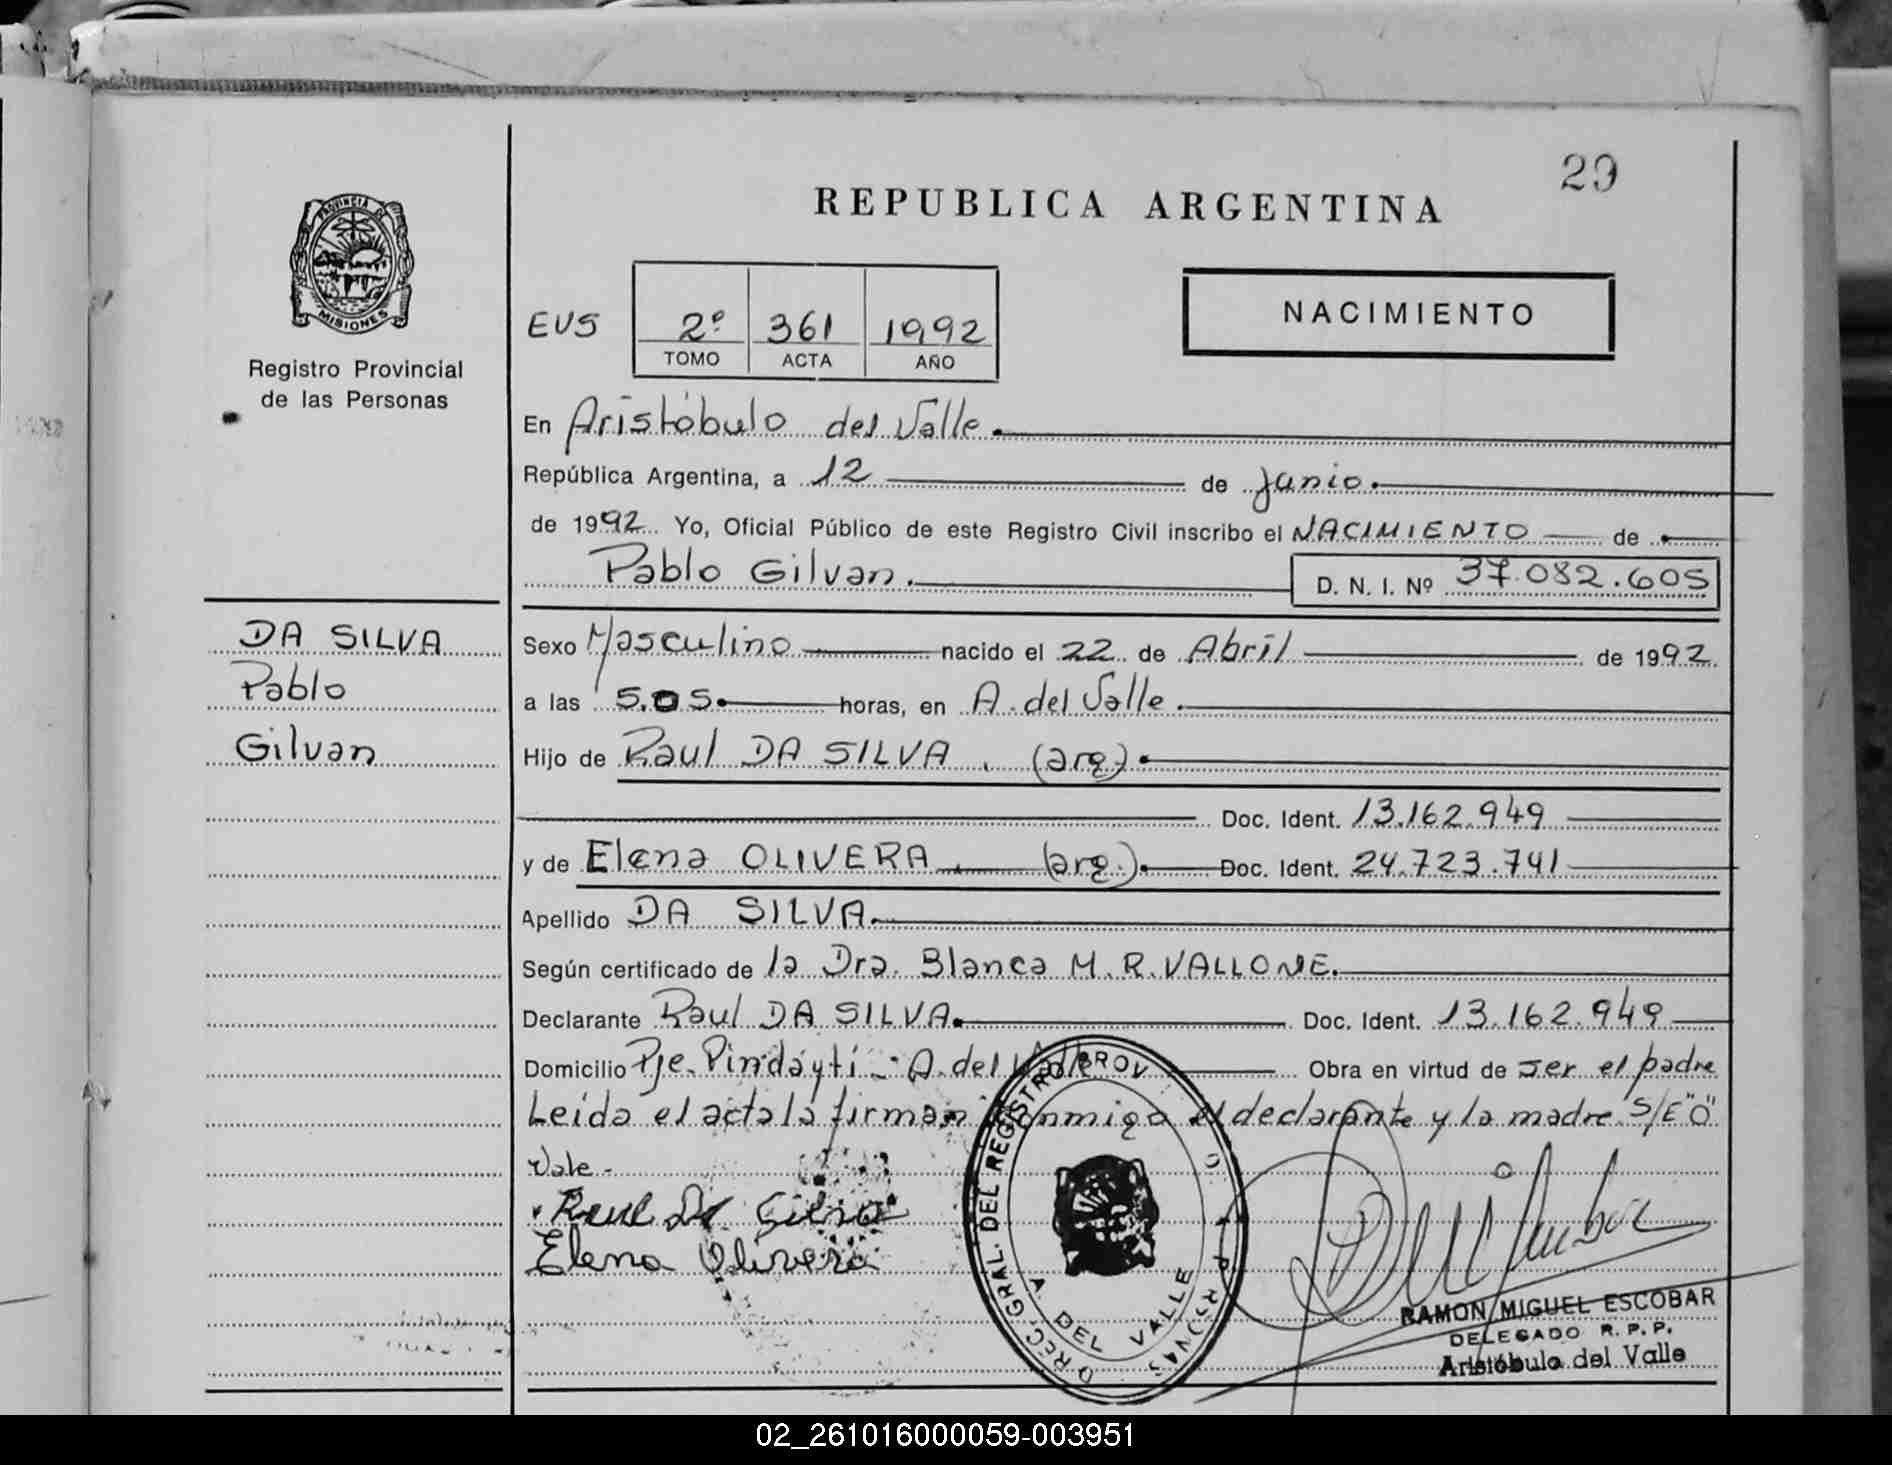 29
REPUBLICA ARGENTINA
PROVINCIA DE
MISIONES
Registro Provincial
de las Personas
EVS
2º 361 1992
TOMO ACTA AÑO
NACIMIENTO
En Aristóbulo del Valle.
República Argentina, a 12 de junio.
de 1992. Yo, Oficial Público de este Registro Civil inscribo el NACIMIENTO de
Pablo Gilvan. D. N. I. Nº 37.082.605
DA SILVA
Pablo
Gilvan
Sexo Masculino nacido el 22 de Abril de 1992.
a las 5.05. horas, en A. del Valle.
Hijo de Raul DA SILVA. (arg).
Doc. Ident. 13.162.949
y de Elena OLIVERA. (arg.). Doc. Ident. 24.723.741
Apellido DA SILVA.
Según certificado de la Dra. Blanca M. R. VALLONE.
Declarante Raul DA SILVA. Doc. Ident. 13.162.949
Domicilio Pje. Pindaytí - A. del Valle Obra en virtud de ser el padre
Leída el acta la firman conmigo el declarante y la madre. S/E "O"
Vale.
Raul Da Silva
Elena Olivera
DIREC. GRAL. DEL REGISTRO PROV.
A. DEL VALLE
RAMON MIGUEL ESCOBAR
DELEGADO R. P. P.
Aristóbulo del Valle
02_261016000059-003951